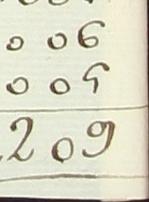 0 06
0 05
209